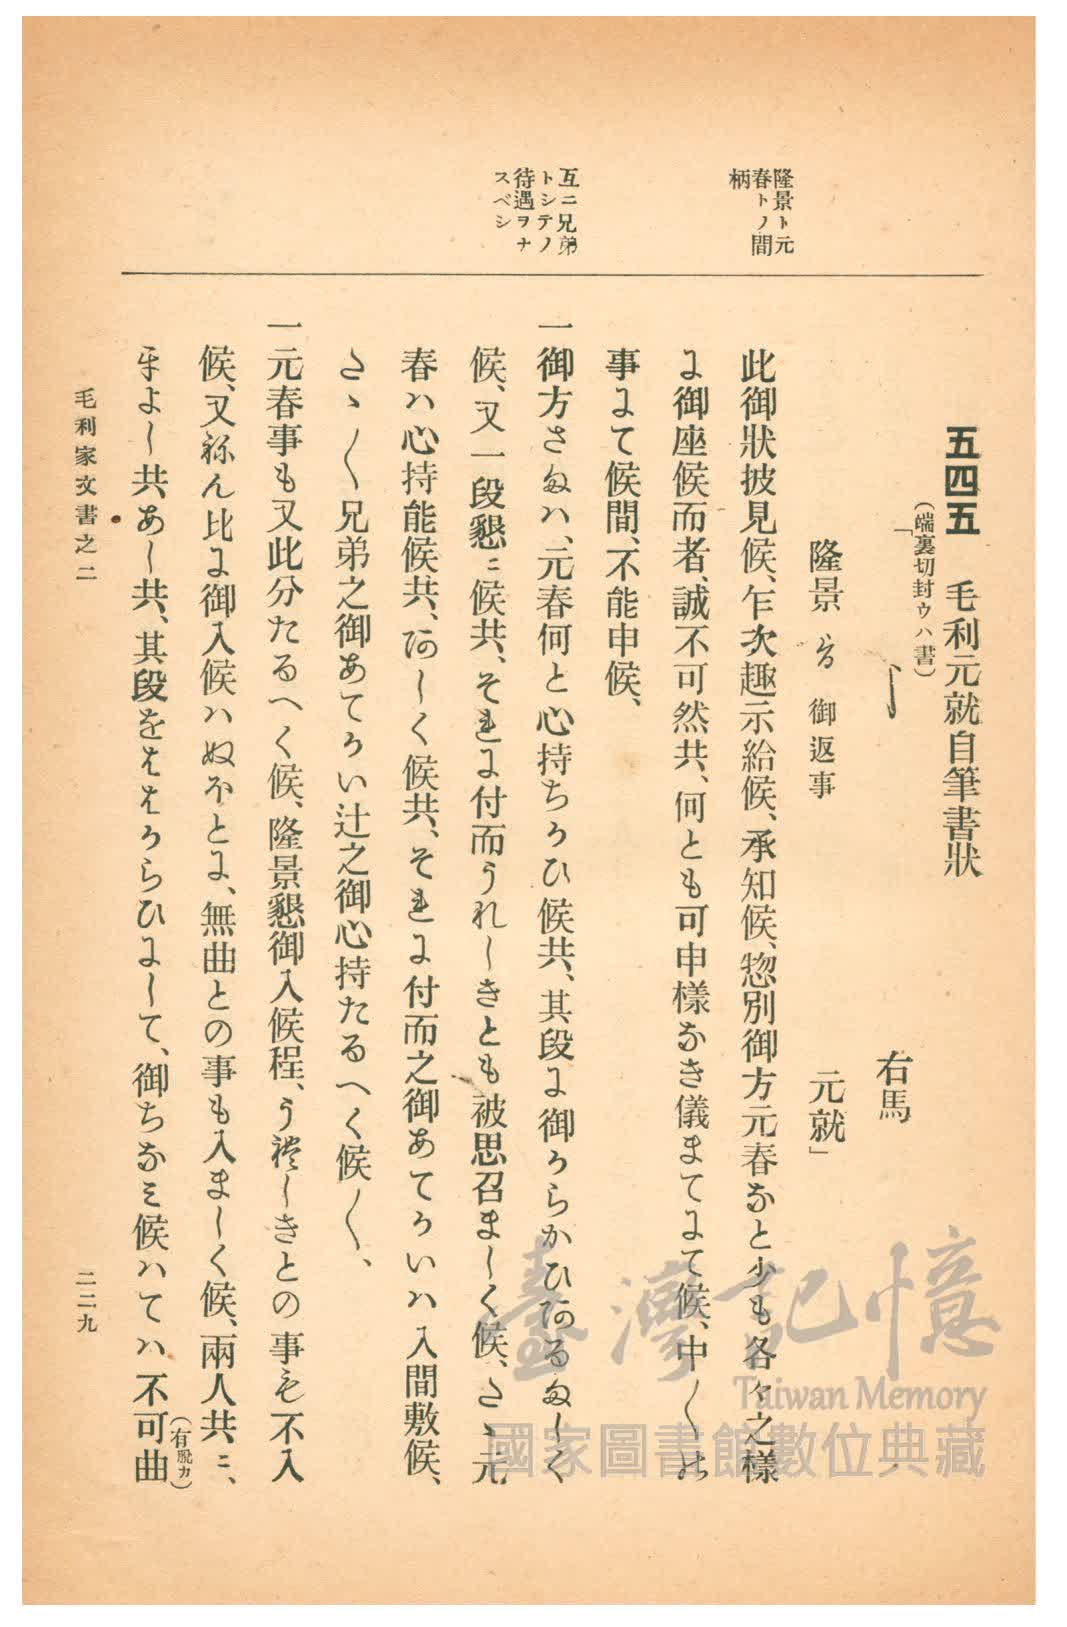 隆景ト元
春トノ間
柄
互ニ兄弟
トシテノ
待遇ヲナ
スベシ
五四五　毛利元就自筆書狀
（端裏切封ウハ書）
「　　　　　　　　　右馬
隆景　御返事　　　　元就」
此御狀披見候、乍次趣示給候、承知候、惣別御方元春なと少も各々之樣
に御座候而者、誠不可然共、何とも可申樣なき儀まてにて候、中〳〵の
事にて候間、不能申候、
一御方さまハ、元春何と心持ちかひ候共、其段に御からかひあるましく
候、又一段懇ニ候共、それに付而うれしきとも被思召ましく候、たゝ元
春ハ心持能候共、あしく候共、それに付而之御あてかいハ入間敷候、
たゝ〳〵兄弟之御あてかい辻之御心持たるへく候〳〵、
一元春事も又此分たるへく候、隆景懇御入候程、うれしきとの事も不入
候、又ねん比に御入候ハぬほとに、無曲との事も入ましく候、兩人共ニ、
よし共あし共、其段をはからひにして、御ちなミ候ハてハ不可曲
（有脫カ）
毛利家文書之二
二二九
臺灣記憶
Taiwan Memory
國家圖書館數位典藏